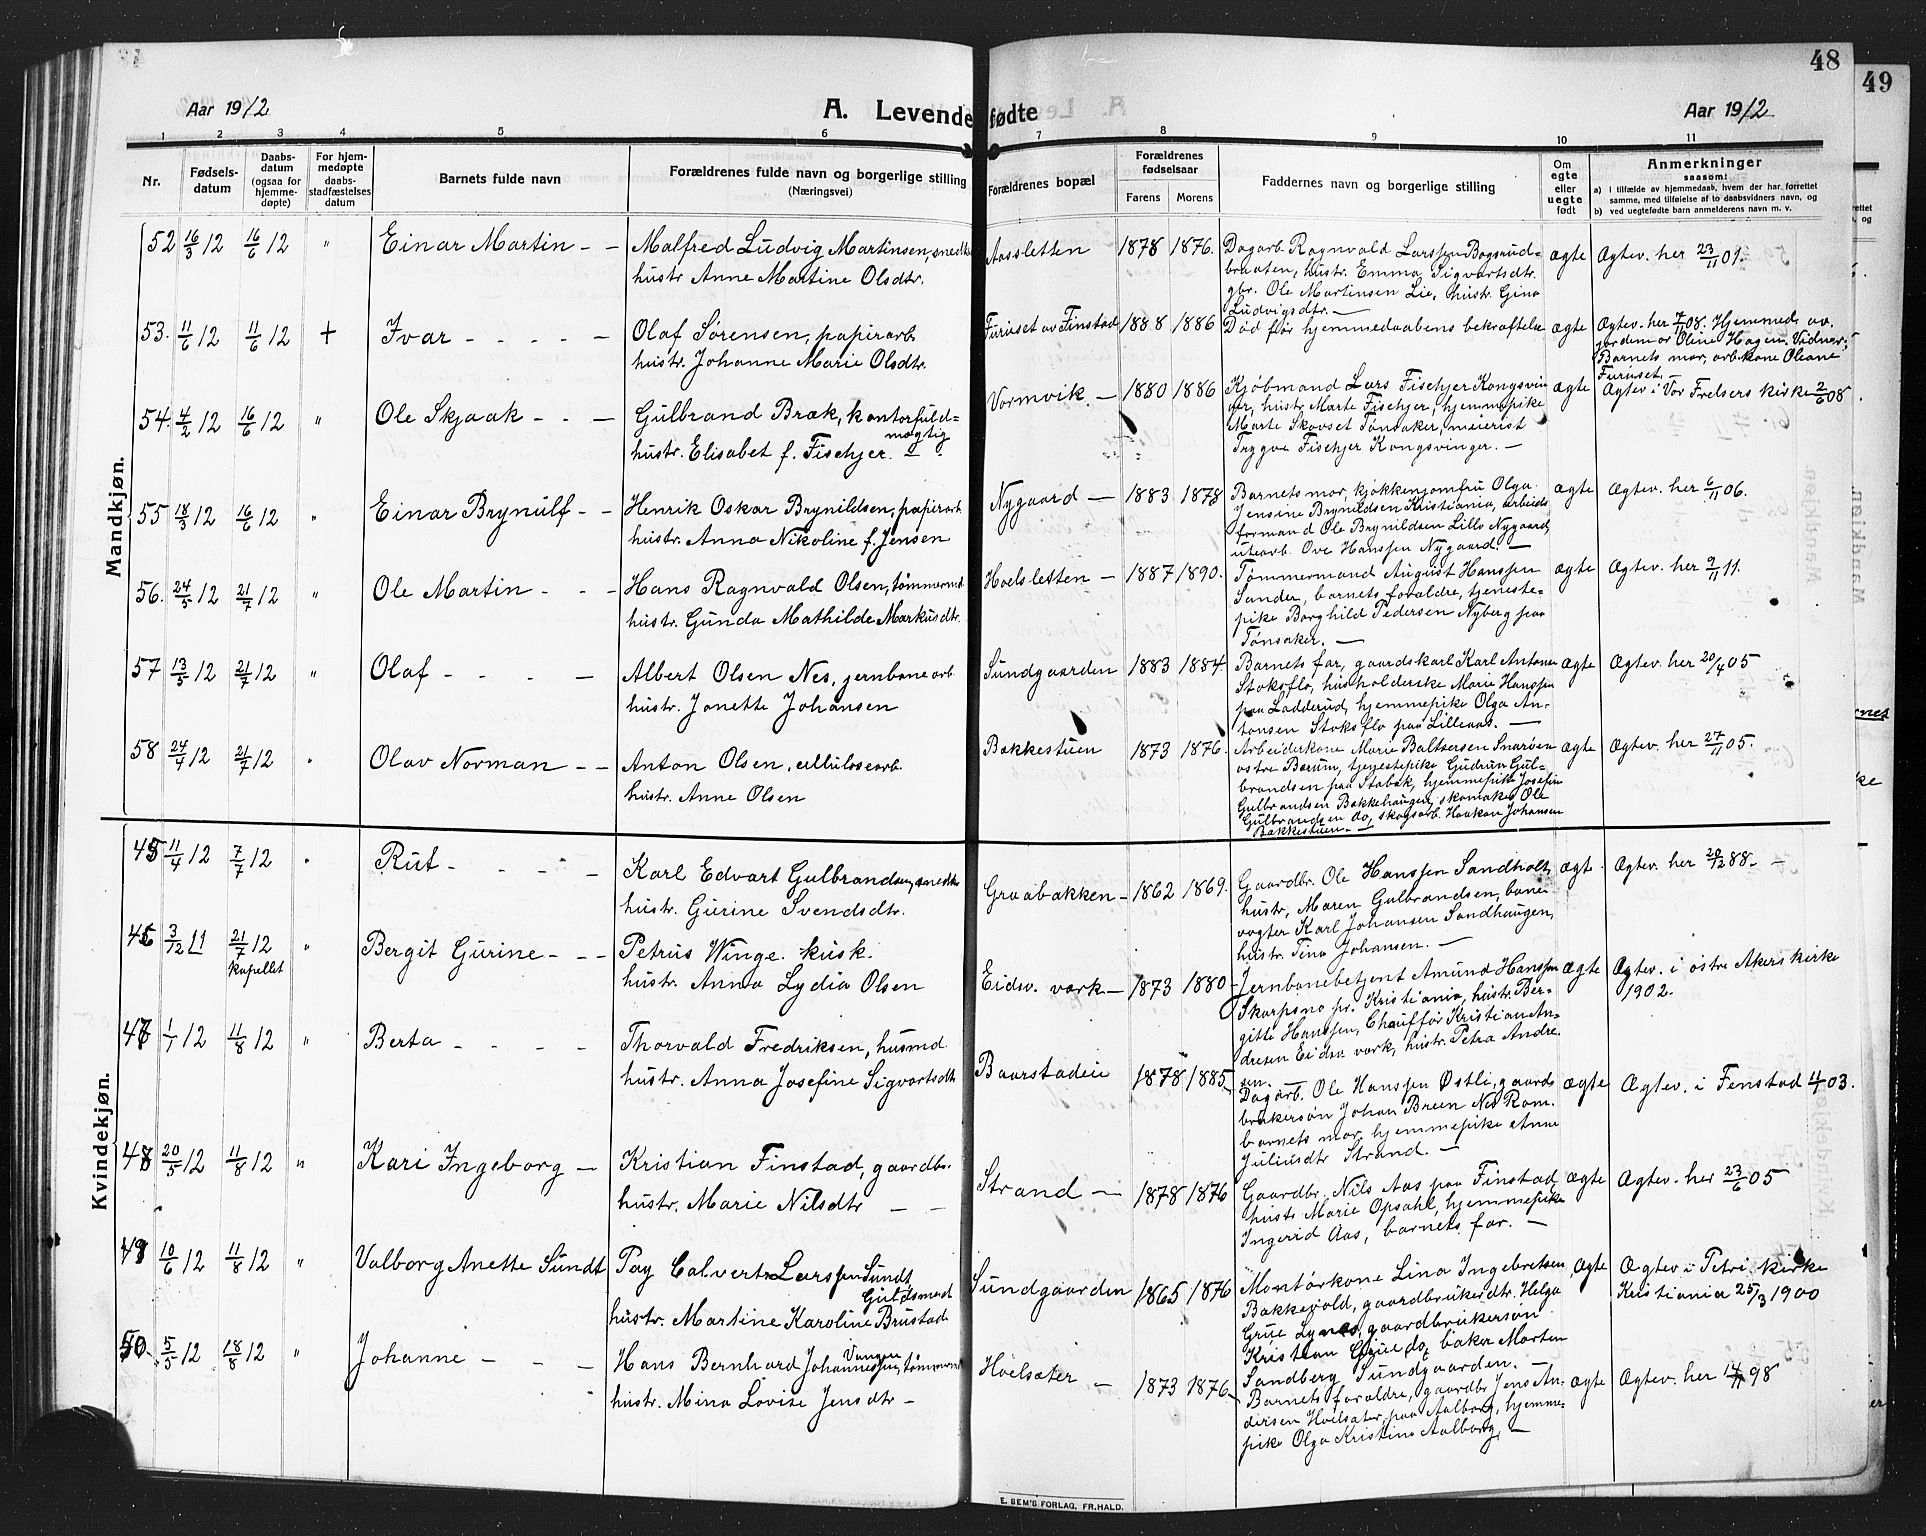 48
49
Aar 1912
A. Levende fødte
Aar 1912
1 2 3 4 5 6 7 8 9 10 11
Nr.
Fødsels-
datum
Daabs-
datum
(ogsaa for
hjemme-
døpte)
For hjem-
medøpte
daabs-
stadfæstelses
datum
Barnets fulde navn
Forældrenes fulde navn og borgerlige stilling
(Næringsvei)
Forældrenes bopæl
Forældrenes
fødselsaar
Farens
Morens
Faddernes navn og borgerlige stilling
Om
ægte
eller
uægte
født
Anmerkninger
saasom:
a) i tilfælde av hjemmedaab, hvem der har forrettet
samme, med tilføielse af to daabsvidners navn, og
b) ved uegtefødte barn anmelderens navn m. v.
Mandkjøn.
52 16/3 12 16/6 12 " Einar Martin - -
Malfred Ludvig Martinsen, snedk
hustr Anne Martine Olsdtr.
Aassletten 1878 1876.
Dagarb. Ragnvald Larssen Bogsrud-
braaten, hustr. Emma Sigvartsdtr.
gbr. Ole Martinsen Lie, hustr. Gina
Ludvigsdtr. —
ægte Ægtev. her 23/11 01.
53. 11/6 12 11/6 12 + Ivar - - - - -
Olaf Sørensen, papirarb
hustr. Johanne Marie Olsdtr.
Furuset av Finstad 1888 1886
Død før hjemmedaabens bekræftelse
ægte Ægtev. her 7/11 08. Hjemmed. av.
jordemor Oline Hagen. Vidner:
Barnets mor, arb.kone Oleane
Furuset.
54. 4/2 12 16/6 12 " Ole Skjaak - - -
Gulbrand Bræk, kontorfuld=
mægtig
hustr. Elisabet f. Fischjer. - -
Vormvik. - 1880 1886
Kjøbmand Lars Fischjer Kongsvin
ger, hustr Marte Fischjer, hjemmepike
Marte Skovset Tønsaker, meierist
Trygve Fischjer Kongsvinger. —
ægte Ægtev i Vor Frelsers kirke 2/6 08
55 18/3 12 16/6 12 " Einar Brynulf - -
Henrik Oskar Brynildsen, papirarb
hustr. Anna Nikoline f. Jensen
Nygaard — 1883 1878
Barnets mor, kjøkkenjomfru Olga
Jensine Brynildsen Kristiania, arbeids
formand Ole Brynildsen Lille Nygaard,
utearb. Ove Hanssen Nygaard. —
ægte Ægtev. her 6/11 06.
56. 24/5 12 21/7 12 " Ole Martin - - -
Hans Ragnvald Olsen, tømmermd
hustr. Gunda Mathilde Markusdtr.
Hoelsletten - 1887 1890.
Tømmermand August Hanssen
Sander, barnets forældre, tjeneste-
pike Borghild Pedersen Nyberg paa
Tønsaker. —
ægte Ægtev. her 9/11 11.
57 13/5 12 21/7 12 " Olaf - - - -
Albert Olsen Nes, jernbanearb
hustr. Jonette Johansen
Sundgaarden 1883 1884.
Barnets far, gaardskarl Karl Antonsen
Stoksflo, husholderske Marie Hanssen
paa Ladderud, hjemmepike Olga An-
tonsen Stoksflo paa Lilleaas. —
ægte Ægtev. her 20/4 05
58 24/4 12 21/7 12 " Olav Norman - -
Anton Olsen, cellulosearb.
hustr. Anne Olsen
Bakkestuen 1873 1876.
Arbeiderkone Marie Baltsersen Snarøen
østre Bærum, tjenestepike Gudrun Gul-
brandsen paa Stabæk, hjemmepike Josefin
Gulbrandsen Bakkehaugen, skomaker Ole
Gulbrandsen do, skogsarb. Haakon Johansen
Bakkestuen. —
ægte Ægtev. her 27/11 05.
Kvindekjøn.
45 11/4 12 7/7 12 " Rut - - - - -
Karl Edvart Gulbrandsen, snedker
hustr. Gurine Svendsdtr.
Graabakken - 1862 1869.
Gaardbr. Ole Hanssen Sandholt,
hustr, Maren Gulbrandsen, bane-
vogter Karl Johansen Sandhaugen,
hustr. Tina Johansen. —
ægt. Ægtev. her 20/12 88. -
46 3/12 11 21/7 12
kapellet
" Bergit Gurine - - -
Petrus Winge. kusk.
hustr. Anna Lydia Olsen
Eidsv. værk - 1873 1880
Jernbanebetjent Amund Hanssen
Skarpsno pr. Kristiania, hustr. Ber-
gitte Hanssen, Chauffør Kristian An-
dresen Eidsv. værk, hustr. Petra Andre
sen. —
ægte Ægtev. i østre Akers kirke
1902.
47 1/1 12 11/8 12 " Berta - - - -
Thorvald Fredriksen, husmd.
hustr. Anna Josefine Sigvartsdtr
Baarstadeie 1878 1885
Dagarb. Ole Hanssen Østli, gaards
brukersøn Johan Breen Nes Rom.
barnets mor, hjemmepike Anne
Juliusdtr Strand. —
ægte Ægtev. i Fenstad 4/1 03.
48 20/5 12 11/8 12 " Kari Ingeborg -
Kristian Finstad, gaardbr.
hustr. Marie Nilsdtr - -
Strand - 1878 1876
Gaardbr. Nils Aas paa Finstad,
hustr Marie Opsahl, hjemmepike
Ingerid Aas, barnets far. —
ægte Ægtev. her 23/6 05
49 10/6 12 11/8 12 " Valborg Anette Sundt
Pay Calvert Larssen Sundt,
Guldsmed
hustr. Martine Karoline Brustad
Sundgaarden 1865 1876
Montørkone Lina Ingebretsen
Bakkevold, gaardbrukerdtr. Helga
Grue Lynes, gaardbrukersøn
Kristian Grue do, baker Morten
Sandberg Sundgaarden. —
ægte Ægtev i Petri kirke
Kristiania 25/3 1900
50 5/5 12 18/8 12 " Johanne - - -
Hans Bernhard Johannessen, tømmermd
Vangen
hustr. Mina Lovise Jensdtr -
Hoelsæter - 1873 1876
Barnets forældre, gaardbr Jens An-
dersen Hoelsæter, paa Aalborg, hjemme-
pike Olga Kristine Aalborg, —
ægte Ægtev. her 14/11 98
E. SEM'S FORLAG, FR.HALD.